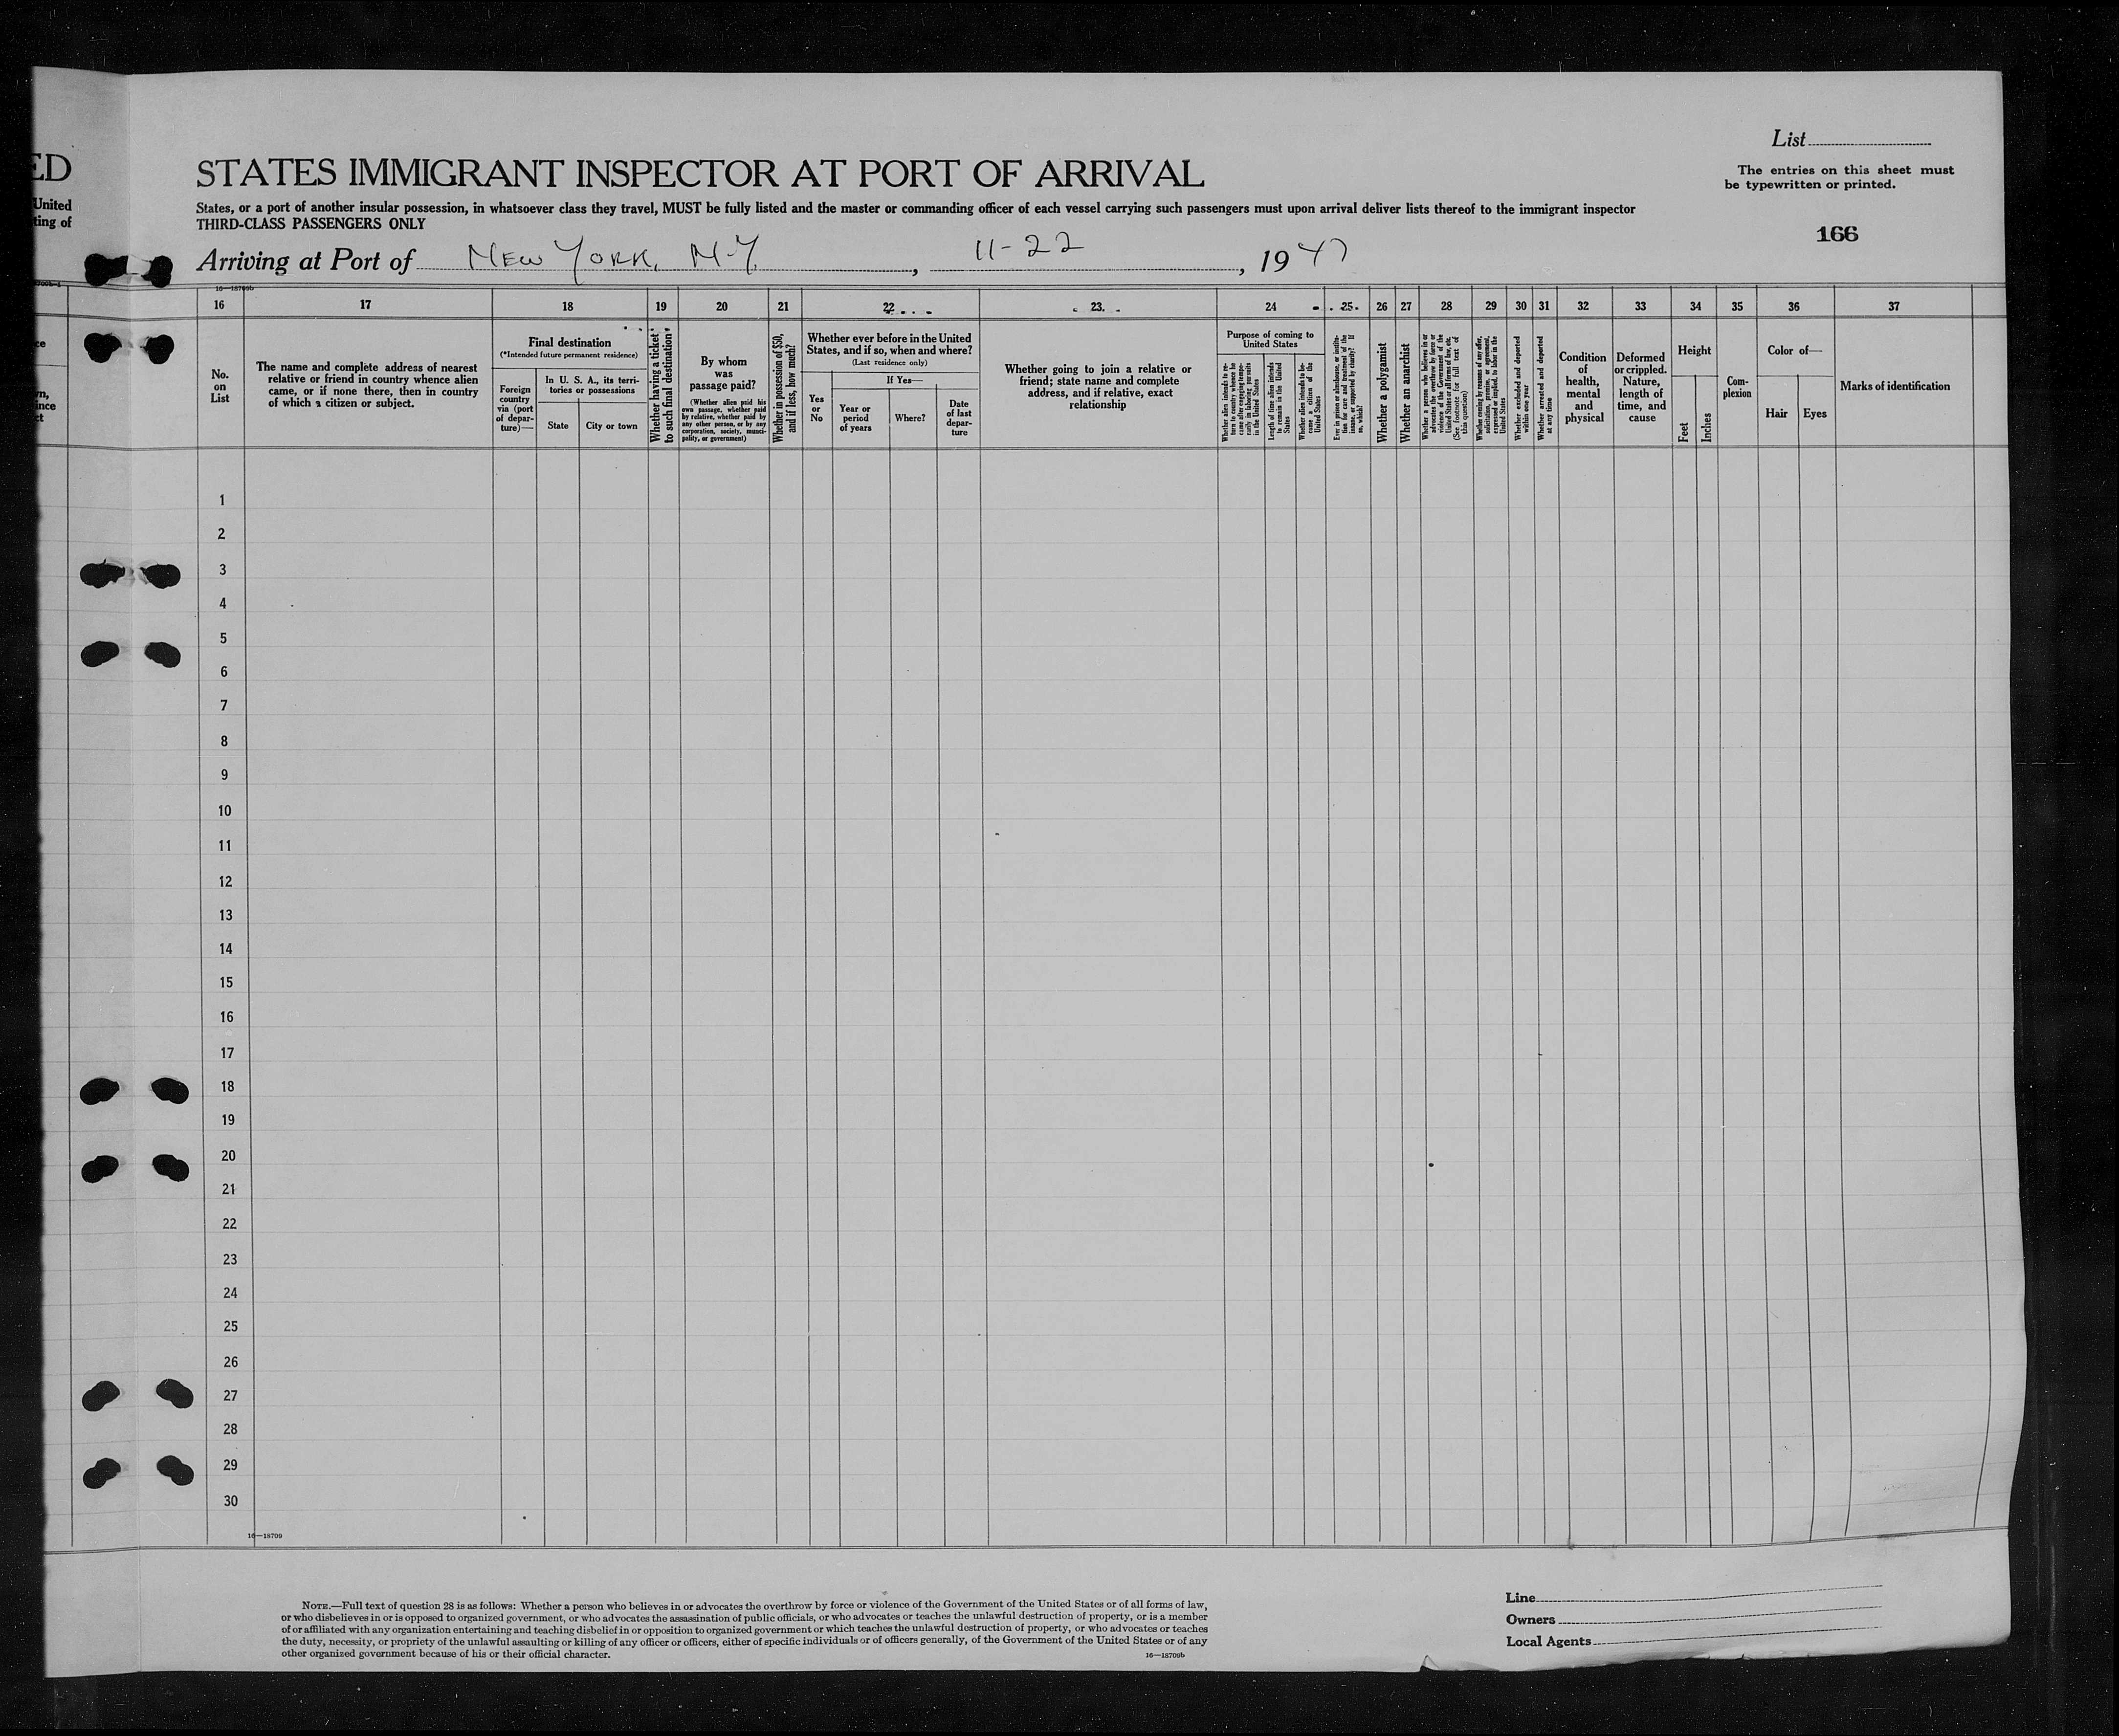 List
ED
STATES IMMIGRANT INSPECTOR AT PORT OF ARRIVAL
The entries on this sheet must
be typewritten or printed.
United
States, or a port of another insular possession, in whatsoever class they travel, MUST be fully listed and the master or commanding officer of each vessel carrying such passengers must upon arrival deliver lists thereof to the immigrant inspector
ting of
THIRD-CLASS PASSENGERS ONLY
166
Arriving at Port of NEW YORK, N.Y., 11-22, 1947
16—18709b
16 17 18 19 20 21 22 23 24 25 26 27 28 29 30 31 32 33 34 35 36 37
No.
on
List
The name and complete address of nearest
relative or friend in country whence alien
came, or if none there, then in country
of which a citizen or subject.
Final destination
(*Intended future permanent residence)
Foreign
country
via (port
of depar-
ture)—
In U. S. A., its terri-
tories or possessions
State
City or town
Whether having a ticket
to such final destination
By whom
was
passage paid?
(Whether alien paid his
own passage, whether paid
by relative, whether paid by
any other person, or by any
corporation, society, munici-
pality, or government)
Whether in possession of $50,
and if less, how much?
Whether ever before in the United
States, and if so, when and where?
(Last residence only)
Yes
or
No
If Yes—
Year or
period
of years
Where?
Date
of last
depar-
ture
Whether going to join a relative or
friend; state name and complete
address, and if relative, exact
relationship
Purpose of coming to
United States
Whether alien intends to re-
turn to country whence he
came after engaging tempo-
rarily in laboring pursuits
in the United States
Length of time alien intends
to remain in the United
States
Whether alien intends to be-
come a citizen of the
United States
Ever in prison or almshouse, or institu-
tion for care and treatment of the
insane, or supported by charity? If
so, which?
Whether a polygamist
Whether an anarchist
Whether a person who believes in or
advocates the overthrow by force or
violence of the Government of the
United States or all forms of law, etc.
(See footnote for full text of
this question)
Whether coming by reason of any offer,
solicitation, promise, or agreement,
expressed or implied, to labor in the
United States
Whether excluded and deported
within one year
Whether arrested and deported
at any time
Condition
of
health,
mental
and
physical
Deformed
or crippled.
Nature,
length of
time, and
cause
Height
Feet
Inches
Com-
plexion
Color of—
Hair
Eyes
Marks of identification
1
2
3
4
5
6
7
8
9
10
11
12
13
14
15
16
17
18
19
20
21
22
23
24
25
26
27
28
29
30
16—18709
NOTE.—Full text of question 28 is as follows: Whether a person who believes in or advocates the overthrow by force or violence of the Government of the United States or of all forms of law,
or who disbelieves in or is opposed to organized government, or who advocates the assassination of public officials, or who advocates or teaches the unlawful destruction of property, or is a member
of or affiliated with any organization entertaining and teaching disbelief in or opposition to organized government or which teaches the unlawful destruction of property, or who advocates or teaches
the duty, necessity, or propriety of the unlawful assaulting or killing of any officer or officers, either of specific individuals or of officers generally, of the Government of the United States or of any
other organized government because of his or their official character.
16—18709b
Line
Owners
Local Agents